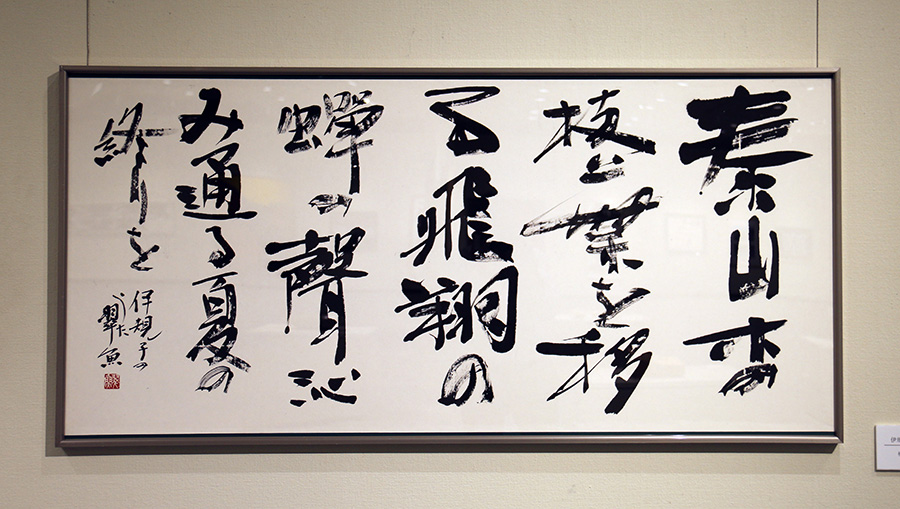 泰山木の
枝と葉を移
る飛翔の
蝉の聲沁
み通る夏の
終りを
伊規子の
うた 翠魚